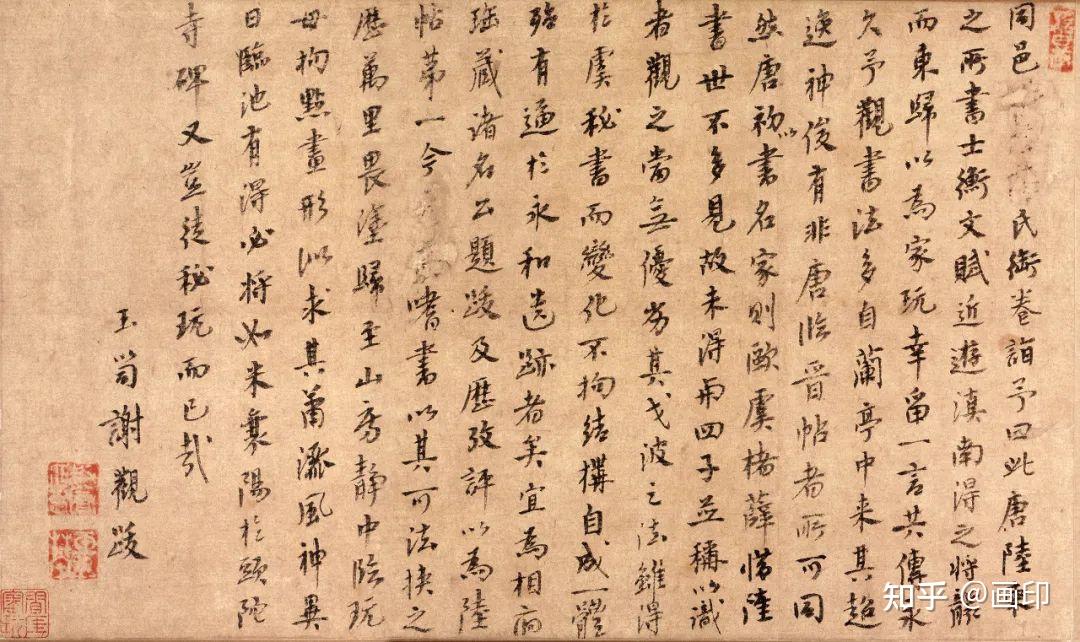 同邑氏衒卷詣予曰此唐陸柬
之所書士衡文賦近遊滇南得之將齎
而東歸以為家玩幸留一言共傳永
久予觀書法多自蘭亭中来其超
逸神俊有非唐臨晉帖者所可同
然唐初以書名家則歐虞褚薛惜陸
書世不多見故未得而四子並稱以識
者觀之當無優劣其戈波之法雖得
於虞秘書而變化不拘結構自成一體
殆有逼於永和遺跡者矣宜為相府
珍藏諸名公題跋及歷攷評以為陸
帖第一今嗜書以其可法挾之
歷萬里畏塗歸至山房靜中臨玩
毋拘點畫形似求其蕭風神異
日臨池有得必將如米襄陽於頭陀
寺碑又豈徒秘玩而已哉
玉笥謝觀跋
知乎 @画印